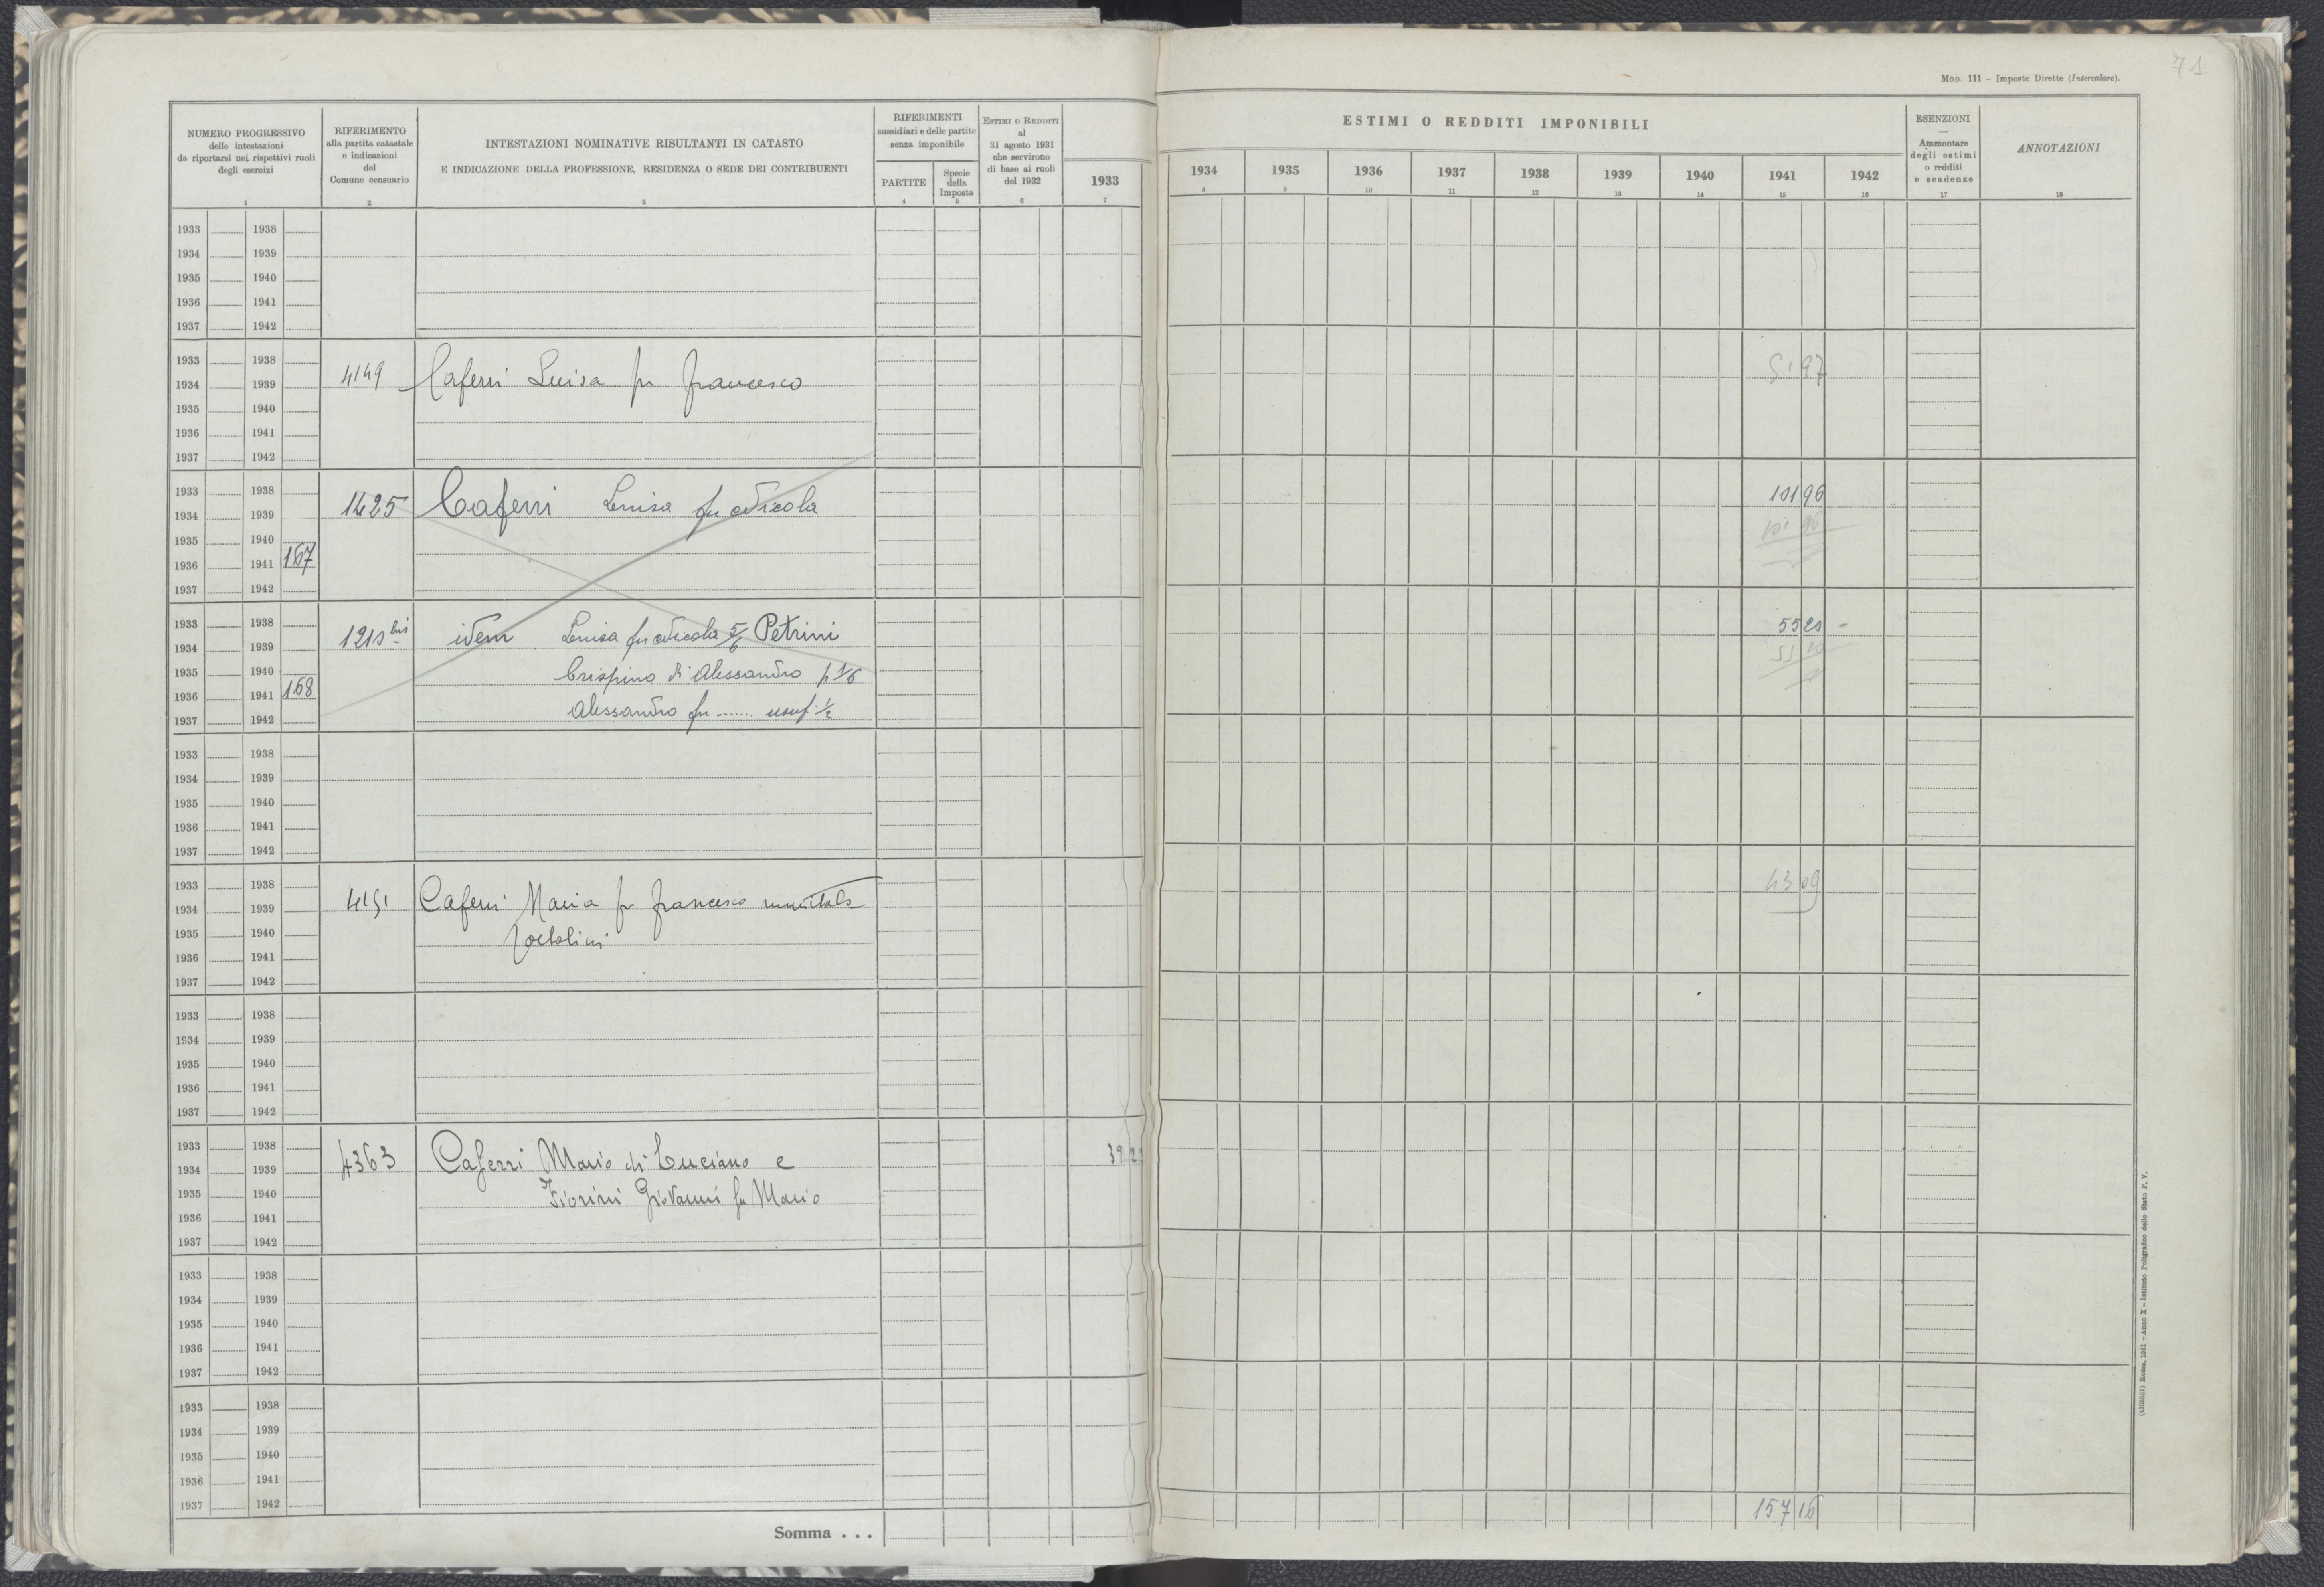 71
MOD. 111 – Imposte Dirette (Intercalare).
NUMERO PROGRESSIVO
delle intestazioni
da riportarsi nei rispettivi ruoli
degli esercizi
1
RIFERIMENTO
alla partita catastale
e indicazioni
del
Comune censuario
2
INTESTAZIONI NOMINATIVE RISULTANTI IN CATASTO
E INDICAZIONE DELLA PROFESSIONE, RESIDENZA O SEDE DEI CONTRIBUENTI
3
RIFERIMENTI
sussidiari e delle partite
senza imponibile
PARTITE
4
Specie
della
Imposta
5
ESTIMI O REDDITI
al
31 agosto 1931
che servirono
di base ai ruoli
del 1932
6
ESTIMI O REDDITI IMPONIBILI
1933 1934 1935 1936 1937 1938 1939 1940 1941 1942
7 8 9 10 11 12 13 14 15 16
ESENZIONI
—
Ammontare
degli estimi
o redditi
e scadenze
17
ANNOTAZIONI
18
1933 1938
1934 1939
1935 1940
1936 1941
1937 1942
1933 1938
1934 1939 4149 Caferri Luisa fu Francesco 51 97
1935 1940
1936 1941
1937 1942
1933 1938 101 96
1934 1939 1425 Caferri Luisa fu Nicola
1935 1940 101 96
1936 1941 167
1937 1942
1933 1938 55 20
1934 1939 1210 bis idem Luisa fu Nicola 5/6 Petrini
1935 1940 Crispino di Alessandro p 1/6
1936 1941 168
1937 1942 Alessandro fu ....... usuf. 1/2
1933 1938
1934 1939
1935 1940
1936 1941
1937 1942
1933 1938 43 09
1934 1939 4151 Caferri Maria fu Francesco
1935 1940
1936 1941
1937 1942
1933 1938
1934 1939
1935 1940
1936 1941
1937 1942
1933 1938
1934 1939 4363 Caferri Mario di Luciano e 39
1935 1940 Fiorini Giovanni fu Mario
1936 1941
1937 1942
1933 1938
1934 1939
1935 1940
1936 1941
1937 1942
1933 1938
1934 1939
1935 1940
1936 1941
1937 1942
Somma . . . 157 16
Roma, 1931 – Anno X – Istituto Poligrafico dello Stato P. V.